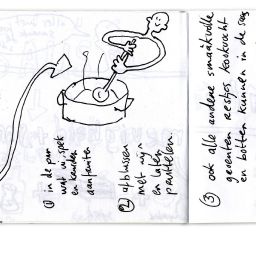 ① in de pan
wat ui, spek
en kruiden
aanfruiten
② afblussen
met wijn
en laten
pruttelen.
③ ook alle andere smaakvolle
groenten restjes kookvocht
en botten kunnen in de